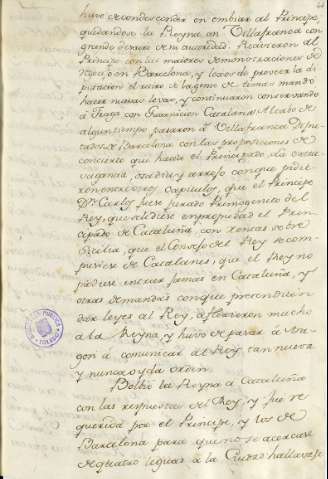 huvo de condescender en embiar al Principe,
quedandose la Reyna en Villafranca con
grande de su autoridad. Recivieron al
Principe con las maiores demonstraciones de
en Barcelona, y lexos de proveer la di
putacion el retiro de la gente de Armas mandó
hacer nuevas levas, y continuaron conservando
à Fraga con Guarnicion Catalana. Al cabo de
algun tiempo pasaron à Villafranca Dipu
tados de Barcelona con las proposiciones de
concierto que hacia el Principado, la extra
vagancia, osadia, y arrojo con que pidie
ron entre otros capitulos, que el Principe
Dn. Carlos fuese jurado Primogenito del
Rey, que se le diese en propiedad el Prin
cipado de Cataluña, con rentas sobre
Sicilia; que el Consejo del Rey se com
pusiese de Catalanes; que el Rey no
pudiese entrar jamas en Cataluña, y
otras demandas con que pretendian
dar leyes al Rey, alteraron mucho
a la Reyna, y huvo de pasar à Ara
gon à comunicar al Rey tan nueva
y nunca oyda orden.
Bolbió la Reyna à Cataluña
con las respuestas del Rey, y fue re
querida por el Principe, y los de
Barcelona para que no se acercase
de quatro leguas à la Ciudad hallavase